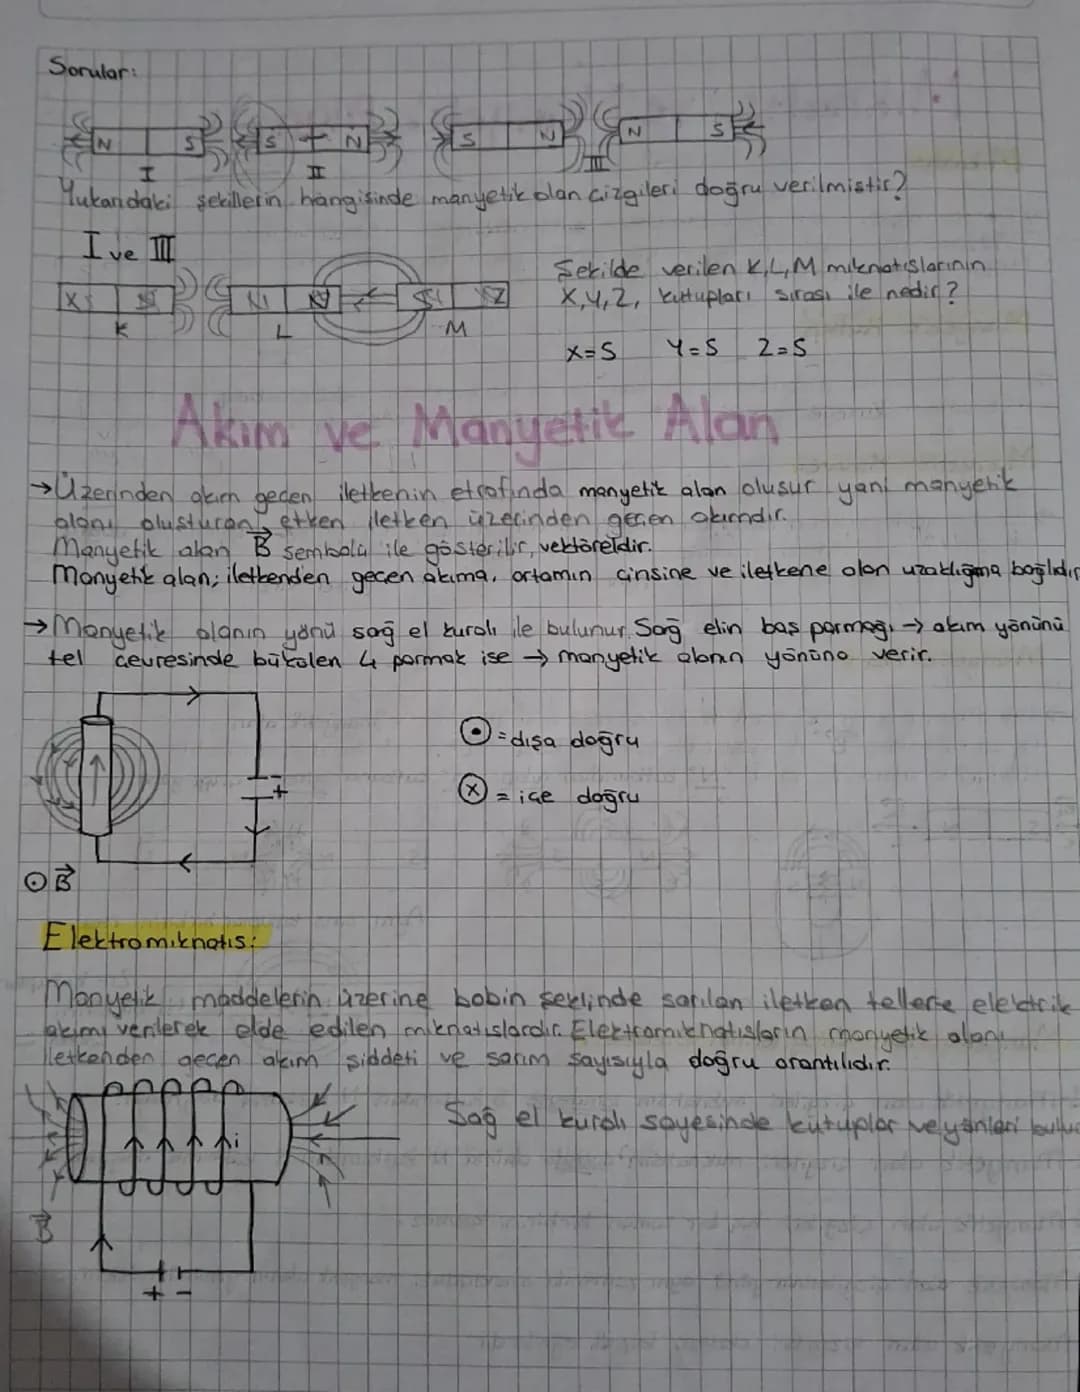 Sorular:
N S S N S N N S
I II III
Yukarıdaki şekillerin hangisinde manyetik alan çizgileri doğru verilmiştir?
I ve III
Şekilde verilen K, L, M mıknatıslarının
X, Y, Z, kutupları sırası ile nedir?
X N S Z
K L M
X=S Y=S Z=S
Akım ve Manyetik Alan
→Üzerinden akım geçen iletkenin etrafında manyetik alan oluşur yani manyetik
alanı oluşturan etken iletken üzerinden geçen akımdır.
Manyetik alan B⃗ sembolü ile gösterilir, vektöreldir.
Manyetik alan; iletkenden geçen akıma, ortamın cinsine ve iletkene olan uzaklığına bağlıdır
→Manyetik alanın yönü sağ el kuralı ile bulunur. Sağ elin baş parmağı → akım yönünü
tel çevresinde bükülen 4 parmak ise → manyetik alanın yönünü verir.
⊙ = dışa doğru
- +
ⓧ = içe doğru
⊙ B⃗
Elektromıknatıs:
Manyetik maddelerin üzerine bobin şeklinde sarılan iletken tellere elektrik
akımı verilerek elde edilen mıknatıslardır. Elektromıknatısların manyetik alanı
iletkenden geçen akım şiddeti ve sarım sayısıyla doğru orantılıdır.
Sağ el kuralı sayesinde kutuplar ve yönleri bulu
i
B⃗
+ -